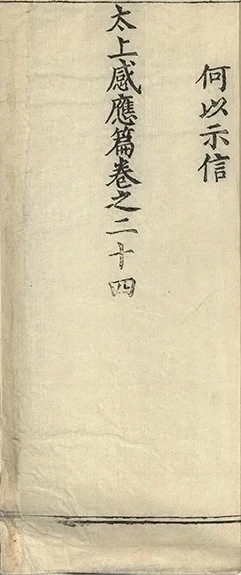 何以示信
太上感應篇卷之二十四